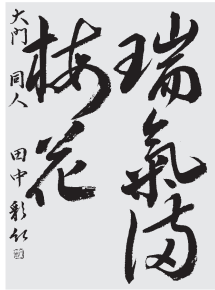 瑞氣満
梅花
大門 同人 田中彩仁